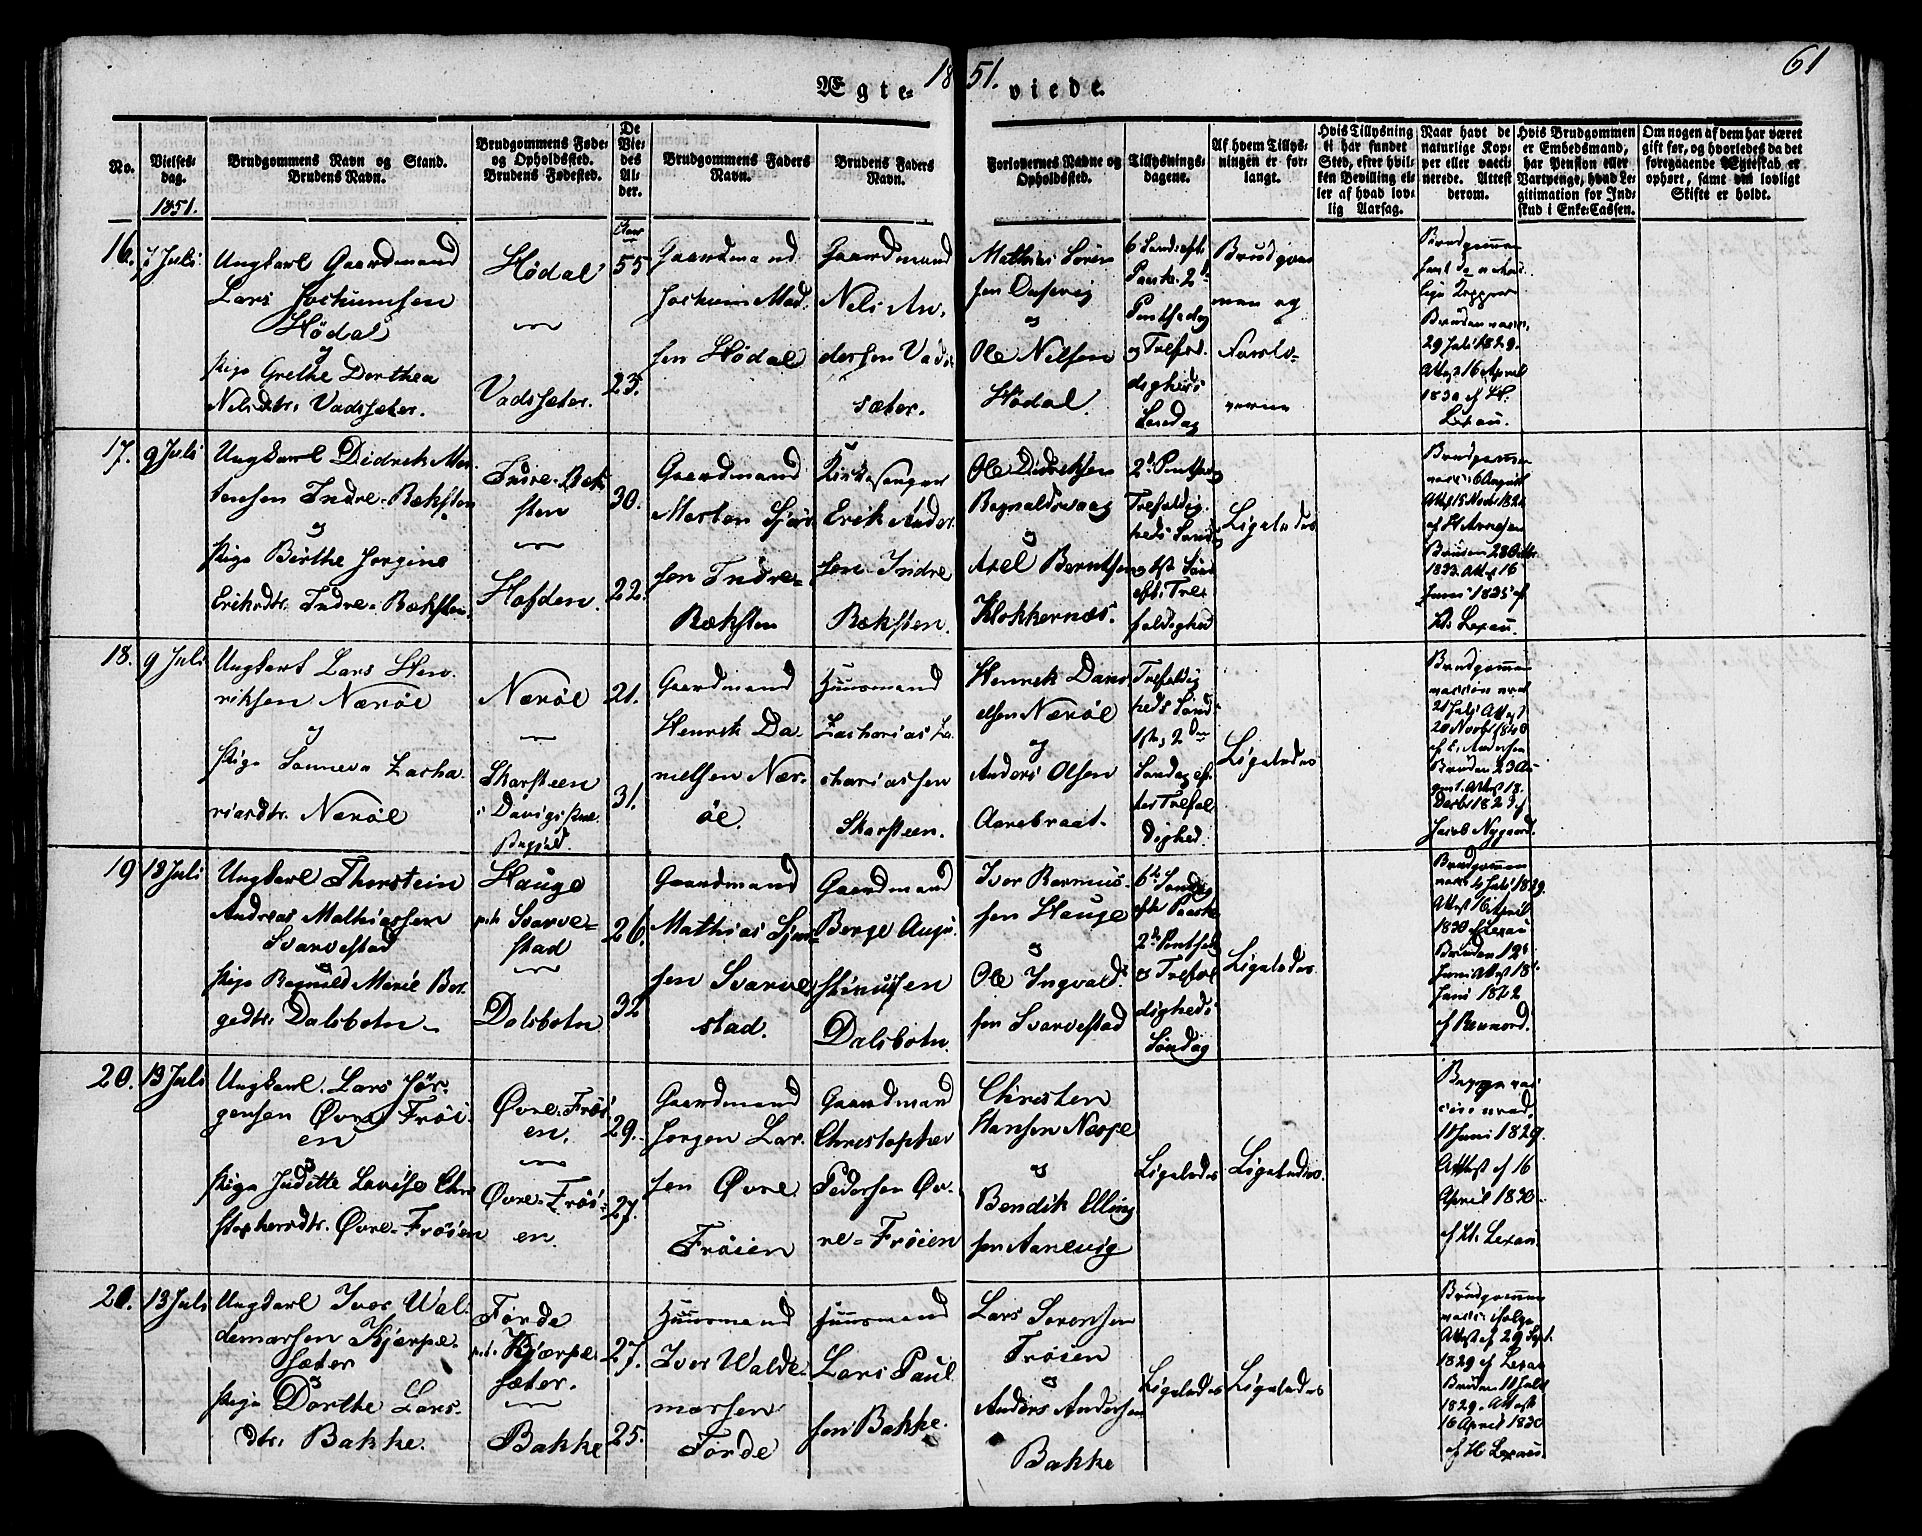 Ægte- 18 51. viede. 61
No.
Vielses-
dag.
1851.
Brudgommens Navn og Stand.
Brudens Navn.
Brudgommens Føde-
og Opholdssted.
Brudens Fødested.
De
Vie-
des
Al-
der.
Brudgommens Faders
Navn.
Brudens Faders
Navn.
Forlovernes Navne og
Opholdssted.
Tillysnings-
dagene.
Af hvem Tillys-
ningen er for-
langt.
Hvis Tillysning
ei har fundet
Sted, efter hvil-
ken Bevilling el-
ler af hvad lov-
lig Aarsag.
Naar havt de
naturlige Kop-
per eller vacci-
nerede. Attest
derom.
Hvis Brudgommen
er Embedsmand,
har Pension eller
Vartpenge, hvad Le-
gitimation for Ind-
skud i Enke-Cassen.
Om nogen af dem har været
gift før, og hvorledes da det
foregaaende Ægteskab er
ophørt, samt om lovligt
Skifte er holdt.
Aar
16.
7 Juli
Ungkarl Gaardmand
Lars Jochumsen
Hödal
og
Pige Grethe Dorthea
Nelsdtr. Vadsæter.
Hödal
Vadsæter.
55
23.
Gaardmand
Jochum Mad
sen Hödal
Gaardmand
Nels An-
dersen Vad-
sæter.
Mathias Sören
sen
og
Ole Nelsen
Hödal.
6 Sönd: eft.
Paaske. 2d
Pintsedag
og Trefol-
digheds
Sondag
Brudgom
men og
Forlo-
verne
Brudgommen
Bruden vacc.
29 Juli 1829.
Attest 16 April
1830 af H.
Lexau.
17.
9 Juli
Ungkarl Didrik Mor
tensen Indre-Bæksten
og
Pige Birthe Jorgine
Eriksdtr. Indre-Bæksten.
Indre-Bæk
sten
Hofden.
30.
22.
Gaardmand
Morten
sen Indre-
Bæksten
Kirkesanger
Erik Ander
sen Indre
Bæksten.
Ole Didriksen
Ragnaldsvaag
og
Axel Berntsen
Klokkernæs.
2d Pintsedag
Trefoldig-
heds Sönd
og 1st Sönd
eft. Tre
foldighed
Ligeledes
Brudgommen
vacc. 6 August
Bruden 28 Octbr.
1833. Attest 16
Juni 1835 af
H. Lexau.
18.
9 Juli
Ungkarl Lars Hen
riksen Næröe
og
Pige Sanneva Zacha
riasdtr. Næröe
Næröe
Skarsteen
i Davigs Præ
21.
31.
Gaardmand
Henrik Da
nielsen Nær-
öe.
Huusmand
Zacharias Za
chariassen
Skarsteen.
Henrik Dani
elsen Næröe
og
Anders Olsen
Aarebraat.
Trefoldig
heds Sönd
1ste, 2den
Sondag ef-
ter Trefol
dighed.
Ligeledes
Brudgommen
vaccineret
21 Juli Attest
af E. Andersen
Bruden 23 Au
gust. Attest 18
Decbr 1829 af
Jacob Nygaard.
19
13 Juli
Ungkarl Thorstein
Andreas Mathiassen
Svarvestad
og
Pige Ragnild Marie Bør
gedtr. Dalsbotn
Hauge
Svarve-
stad
Dalsbotn
26.
32
Gaardmand
Mathias
sen Svarve
stad.
Gaardmand
Børge Augu
stinusen
Dalsbotn.
Iver Rasmus-
sen Hauge
og
Ole Ingvald-
sen Svarvestad
6te Sondag
eft. Paaske
2d Pintsed
og Trefol
digheds
Söndag
Ligeledes
Brudgommen
vacc. 4 Juli 1829.
Attest 16 April
1830 af Lexau
Bruden 12
Juni Attest 18
Juni 1822
20.
13 Juli
Ungkarl Lars Jör-
gensen Øvre Fröi-
en
og
Pige Juditte Lovise Chri
stophersdtr. Øvre-Fröien
Øvre-Fröi
en.
Øvre-Fröi-
en.
29.
27.
Gaardmand
Jorgen Lar-
sen Øvre
Fröien
Gaardmand
Christopher
Pedersen Øv-
re-Fröien
Christen
Hansen Naspe
og
Bendik Elling
sen Aanevig
Ligeledes
Ligeledes.
Begge vac
cinerede
11 Juni 1829.
Attest af 16
April 1830.
af H. Lexau.
21.
13 Juli
Ungkarl Iver Wal-
demarsen Kjærpe-
sæter
og
Pige Dorthe Lars-
dtr. Bakke.
Förde
Kjærpe-
sæter.
Bakke
27.
25.
Huusmand
Iver Walde-
marsen
Förde
Huusmand
Lars Paul
sen Bakke.
Lars Sorensen
Fröien
og
Anders Andersen
Bakke
Ligeledes
Ligeledes
Brudgommen
vacc. ifølge
Attest af 29 Sept.
1829 af Lexau
Bruden 11 Juli
1829. Attest
16 April 1830
af H. Lexau.